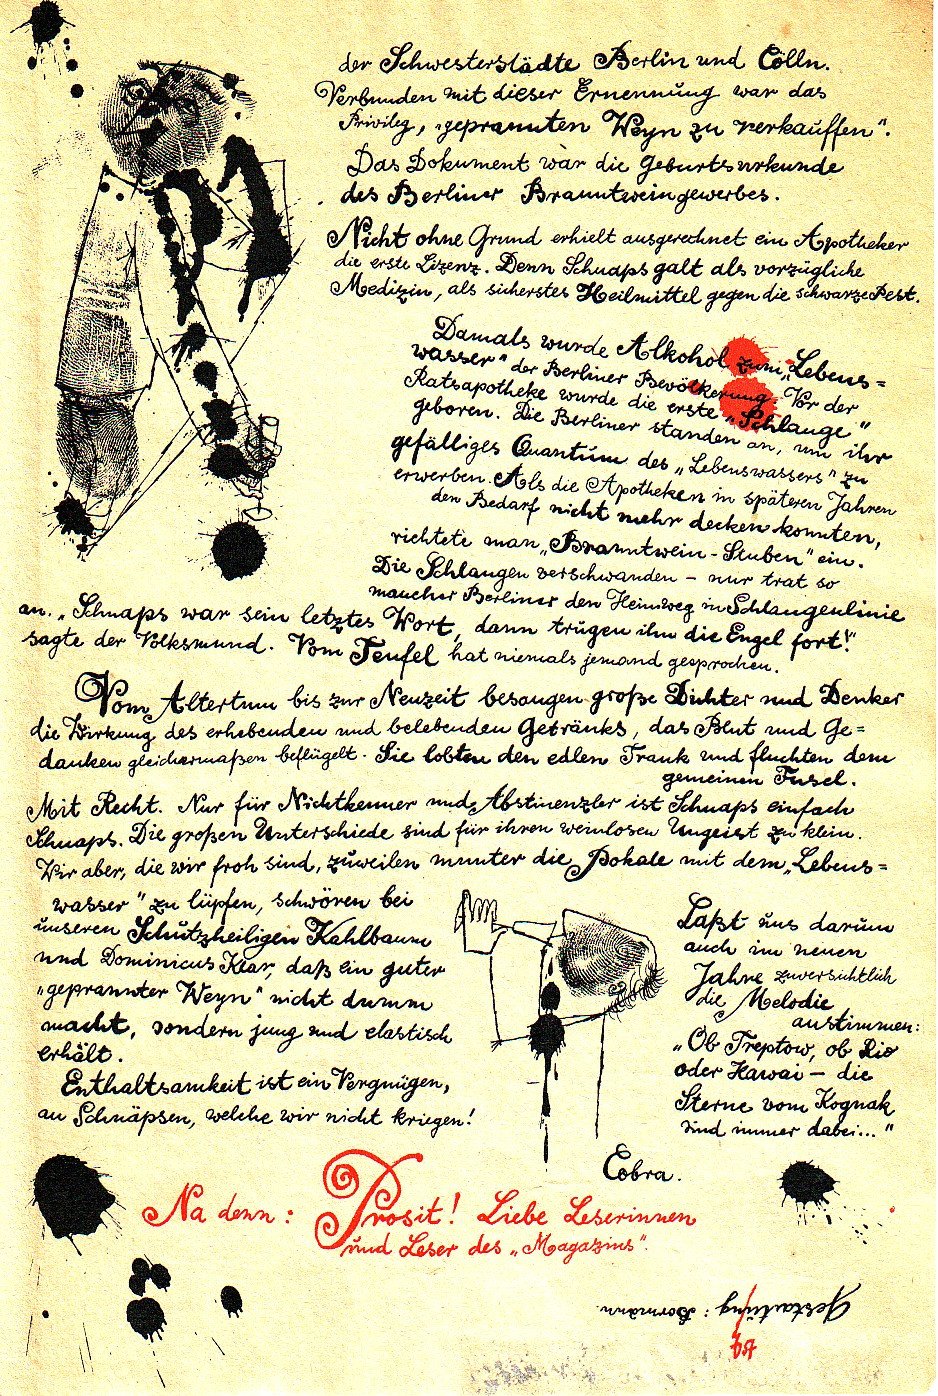 der Schwesterstädte Berlin und Cölln.
Verbunden mit dieser Ernennung war das
Privileg, „geprannten Weyn zu verkauffen".
Das Dokument war die Geburtsurkunde
des Berliner Branntweingewerbes.
Nicht ohne Grund erhielt ausgerechnet ein Apotheker
die erste Lizenz. Denn Schnaps galt als vorzügliche
Medizin, als sicherstes Heilmittel gegen die schwarze Pest.
Damals wurde Alkohol zum „Lebens=
wasser" der Berliner Bevölkerung. Vor der
Ratsapotheke wurde die erste „Schlange"
geboren. Die Berliner standen an, um ihr
gefälliges Quantum des „Lebenswassers" zu
erwerben. Als die Apotheken in späteren Jahren
den Bedarf nicht mehr decken konnten,
richtete man „Branntwein-Stuben" ein.
Die Schlangen verschwanden – nur trat so
mancher Berliner den Heimweg in Schlangenlinie
an. „Schnaps war sein letztes Wort, dann trugen ihn die Engel fort!"
sagte der Volksmund. Vom Teufel hat niemals jemand gesprochen.
Vom Altertum bis zur Neuzeit besangen große Dichter und Denker
die Wirkung des erhebenden und belebenden Getränks, das Blut und Ge=
danken gleichermaßen beflügelt. Sie lobten den edlen Trank und fluchten dem
gemeinen Fusel.
Mit Recht. Nur für Nichtkenner und Abstinenzler ist Schnaps einfach
Schnaps. Die großen Unterschiede sind für ihren weinlosen Ungeist zu klein.
Wir aber, die wir froh sind, zuweilen munter die Pokale mit dem „Lebens=
wasser" zu lüpfen, schwören bei
unseren Schutzheiligen Kahlbaum
und Dominicus Klar, daß ein guter
„geprannter Weyn" nicht dumm
macht, sondern jung und elastisch
erhält.
Enthaltsamkeit ist ein Vergnügen,
an Schnäpsen, welche wir nicht kriegen!
Laßt uns darum
auch im neuen
Jahre zuversichtlich
die Melodie
anstimmen:
„Ob Treptow, ob Rio
oder Hawai – die
Sterne vom Kognak
sind immer dabei..."
Cobra.
Na denn: Prosit! Liebe Leserinnen
und Leser des „Magazins".
Gestaltung: Bormann